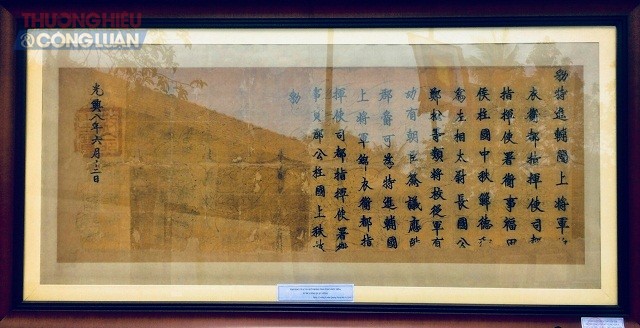 THƯƠNGHIỆU
&CÔNGLUẬN
勅特進輔國上將軍
衣衛都指揮使司
指揮使署衛事福田
侯柱國中秩鄭德
為左相太尉長國公
鄭松等類將秩後軍有
功有朝臣僉議應
郡爵可為特進輔國
上將軍錦衣衛都指
揮使司都指揮使署
事貝郡公柱國上秩
勅
光興八年六月二日